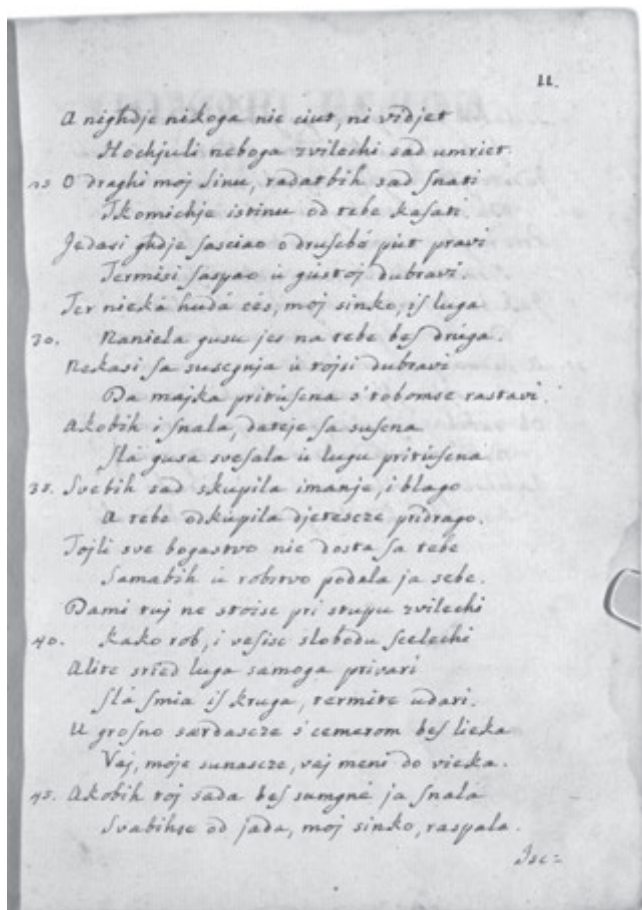 11.
A nighdje nikoga nie ciut, ni vidjet
Hochjuli neboga zvilechi sad umriet.
25 O draghi moj sinu, radatbih sad snati
Tkomichje istinu od tebe kasati.
Jedasi ghdje sasciao o drusebá pút pravi
Termisi saspao ú gustoj dubravi.
Ter nieká hudá cés, moj sinko, is luga
30. Naniela gusu jes na tebe bes drúga.
Nekasi sa susegnja ú tojsi dubravi
Da majka pritúsena s'tobomse rastavi.
Akobih i snala, dateje sa susena
Slá gusa svesala ú lugu pritúsena
35. Svebih sad skupila imanje, i blago
A tebe odkúpila djetescze pridrago.
Tojli sve bogastvo nie dosta sa tebe
Samabih ú robstvo podala ja sebe.
Dami tuj ne stoisc pri stupu zvilechi
40. Kako rob, i vesisc slobodu scelechi
Alite sried luga samoga privari
Slá smia is kruga, termite udari.
U grosno sardascze s'cemerom bes lieka
Vaj, moje sunascze, vaj meni do vieka.
45. Akobih toj sada bes sumgné ja snala
Svabihse od jada, moj sinko, raspala.
Jsc=